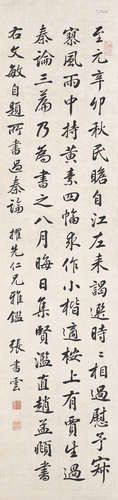 至元辛卯秋民瞻自江左来謁選時二相過慰予寂
寞風雨中持黄素四幅求作小楷適桉上有賈生過
秦論三篇乃為書之八月晦日集賢濫直趙孟頫書
右文敏自題所書過秦論 擢先仁兄雅鑑 張書雲